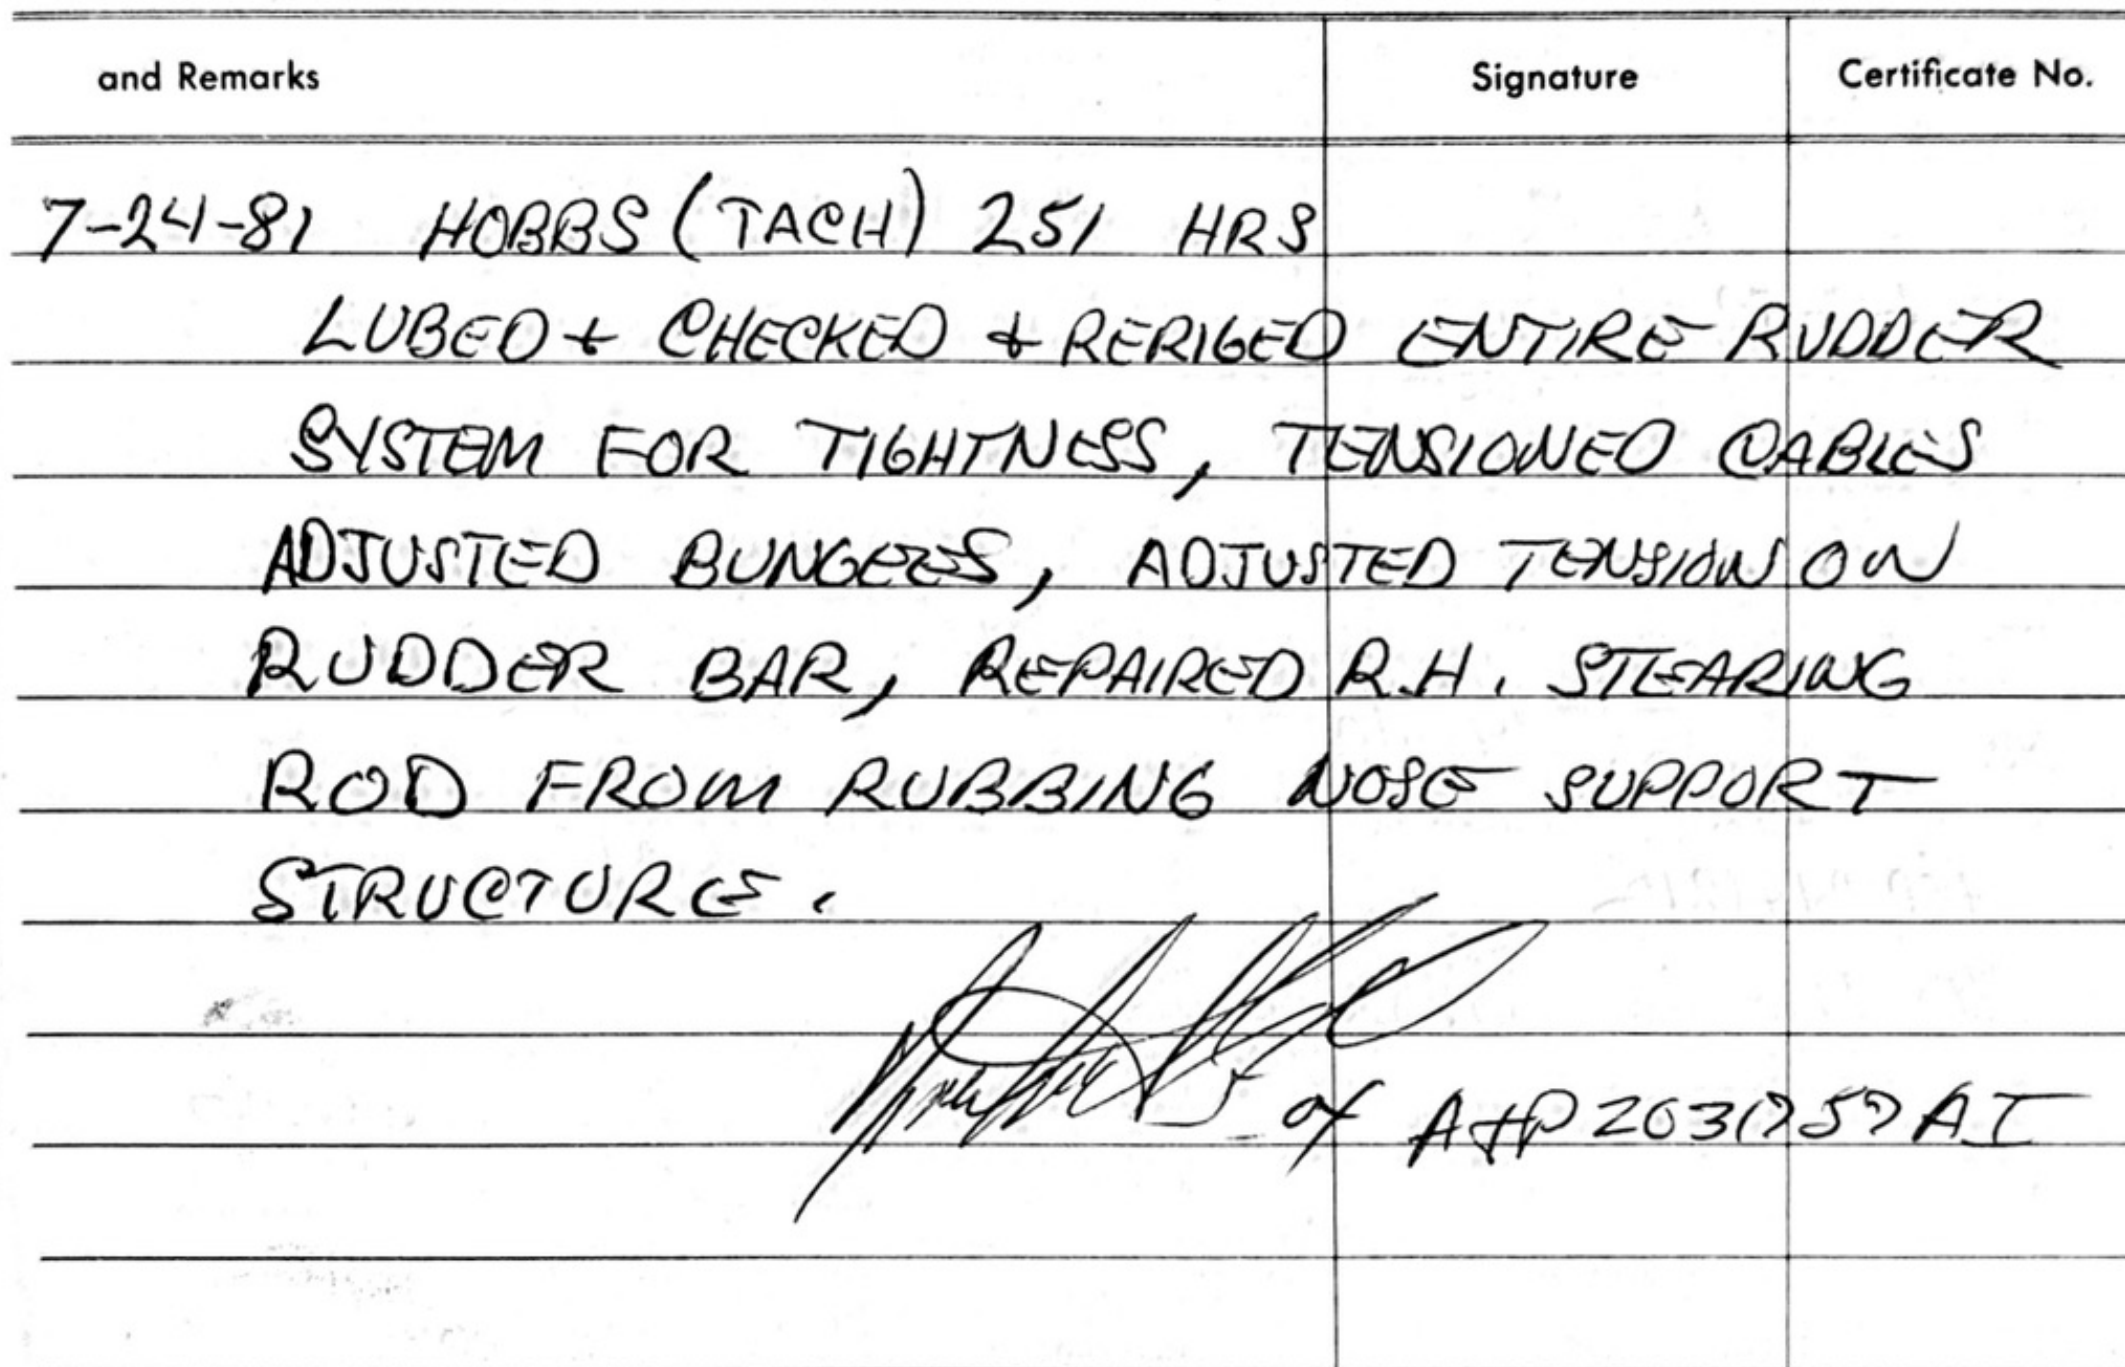 and Remarks Signature Certificate No.
7-24-81 HOBBS (TACH) 251 HRS
LUBED + CHECKED + RERIGED ENTIRE RUDDER
SYSTEM FOR TIGHTNESS, TENSIONED CABLES
ADJUSTED BUNGEES, ADJUSTED TENSION ON
RUDDER BAR, REPAIRED R.H. STEARING
ROD FROM RUBBING NOSE SUPPORT
STRUCTURE.
A+P AI